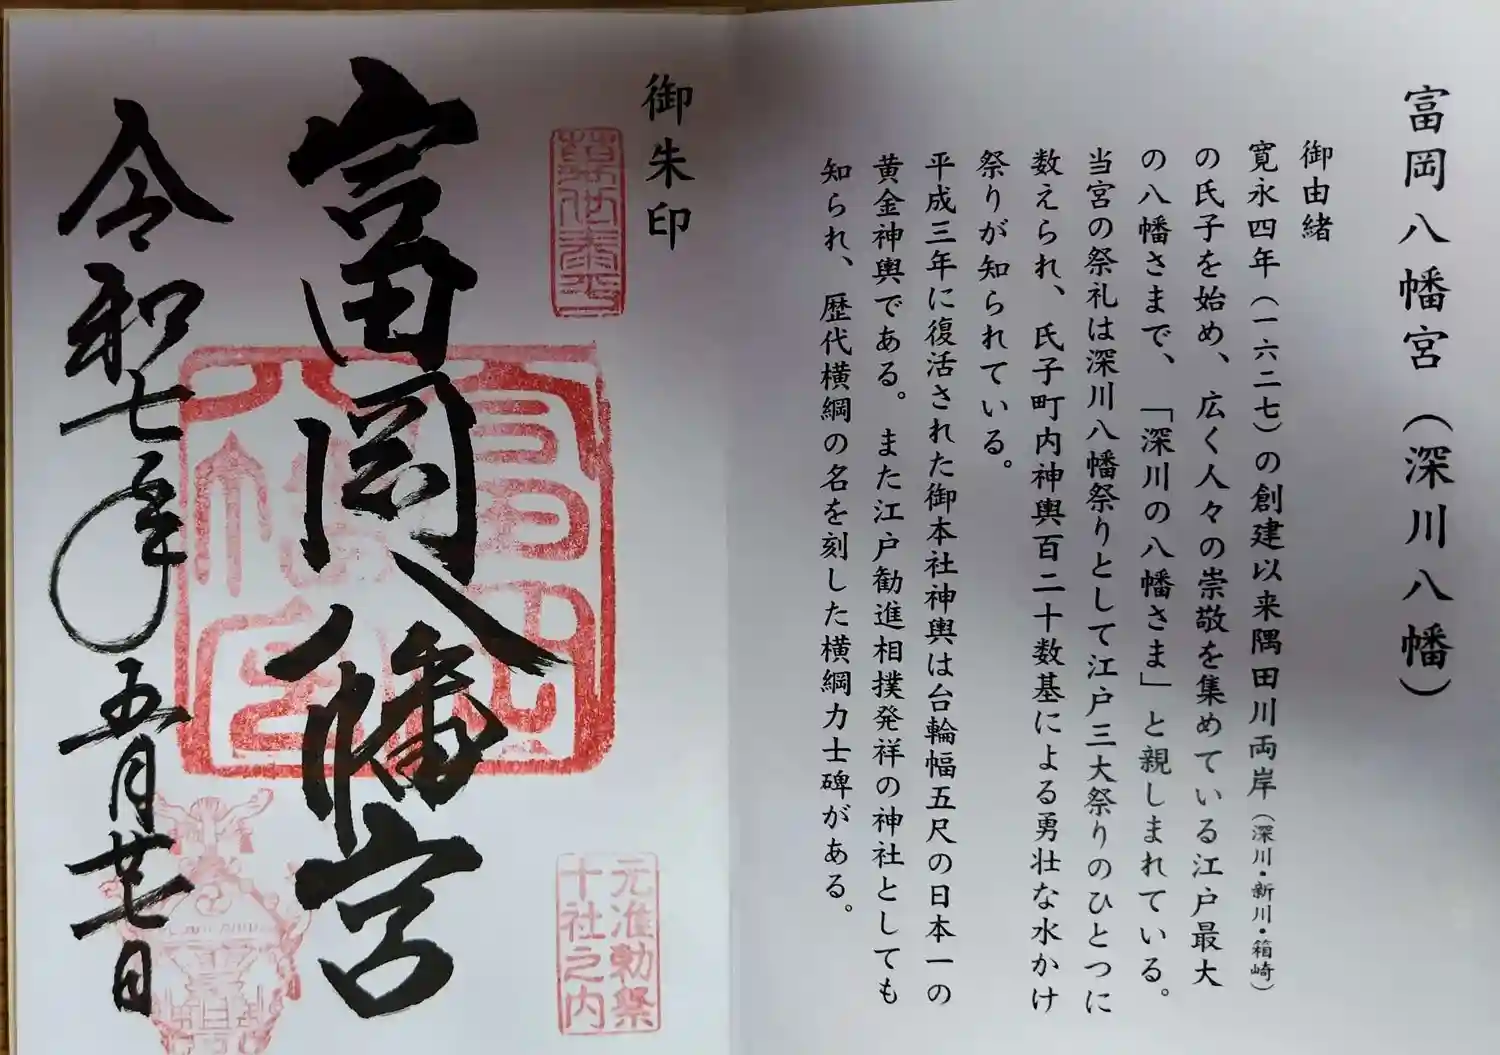 富岡八幡宮（深川八幡）
御由緒
寛永四年（一六二七）の創建以来隅田川両岸（深川・新川・箱崎）
の氏子を始め、広く人々の崇敬を集めている江戸最大
の八幡さまで、「深川の八幡さま」と親しまれている。
当宮の祭礼は深川八幡祭りとして江戸三大祭りのひとつに
数えられ、氏子町内神輿百二十数基による勇壮な水かけ
祭りが知られている。
平成三年に復活された御本社神輿は台輪幅五尺の日本一の
黄金神輿である。また江戸勧進相撲発祥の神社としても
知られ、歴代横綱の名を刻した横綱力士碑がある。
御朱印
富岡八幡宮
令和七年五月廿七日
元准勅祭
十社之内